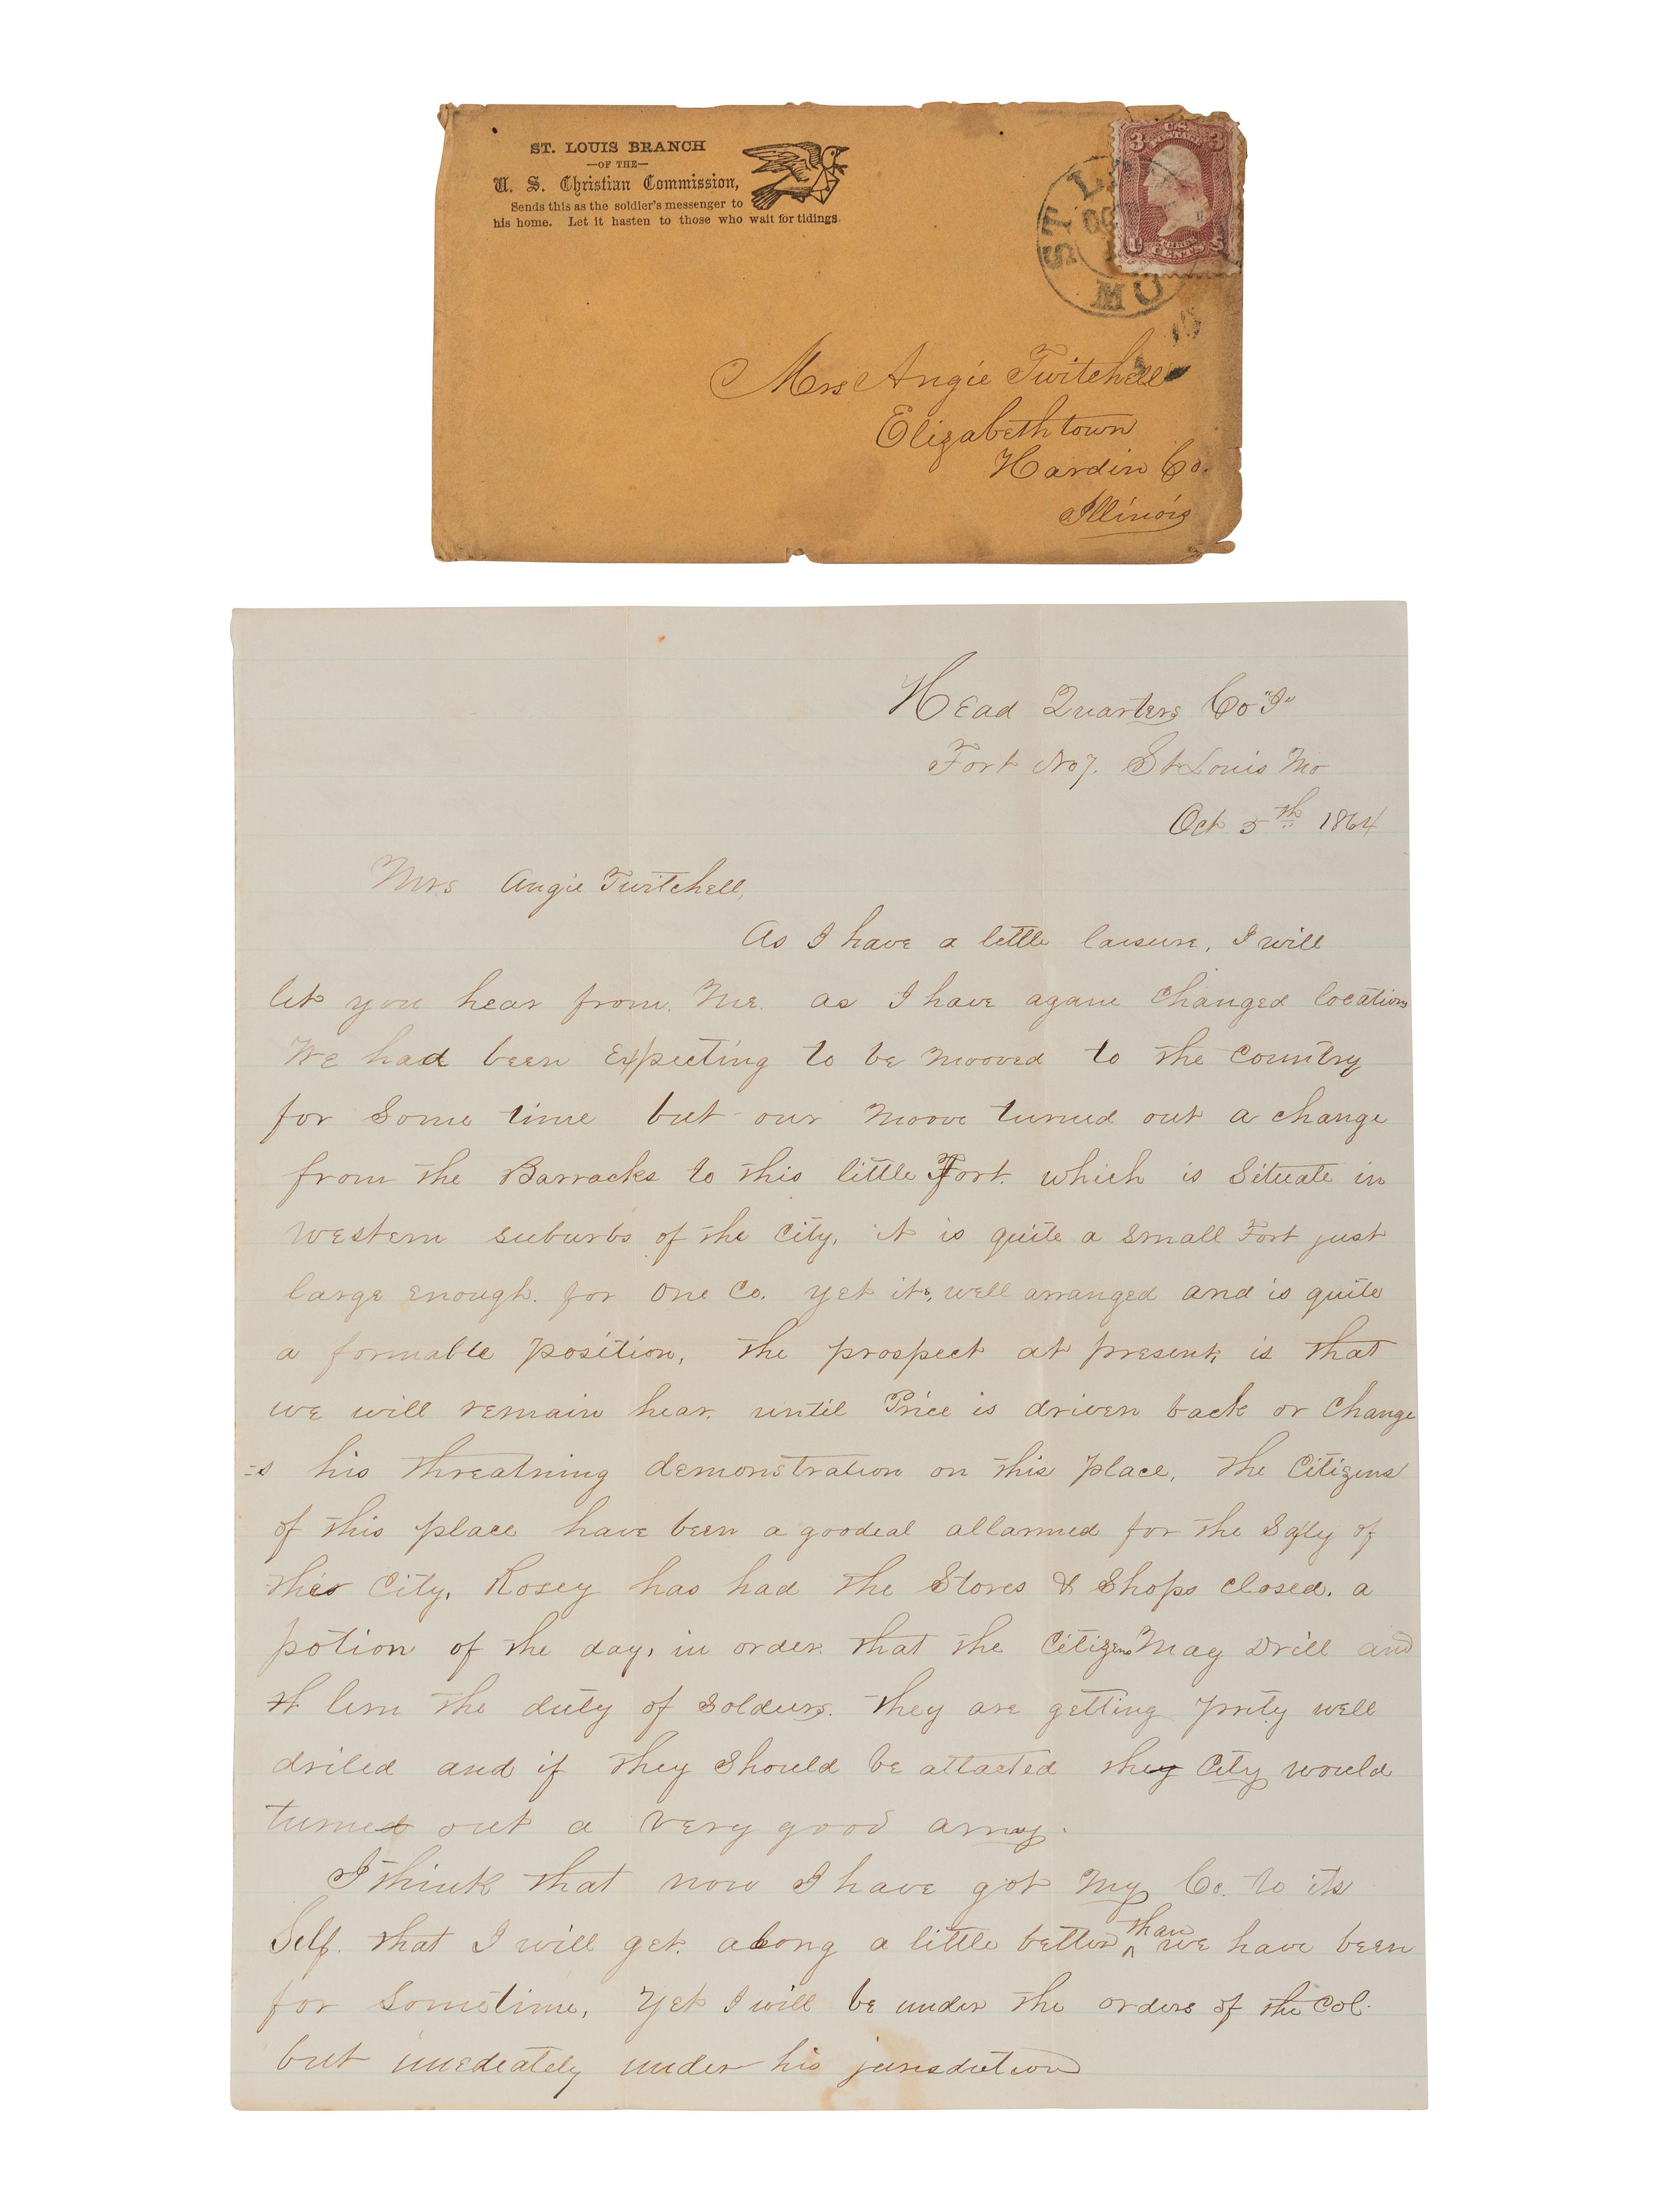 ST. LOUIS BRANCH
—OF THE—
U. S. Christian Commission,
Sends this as the soldier's messenger to
his home. Let it hasten to those who wait for tidings.
U.S. POSTAGE
3 3
CENTS
ST. L
OC
MO
Mrs Angie Twitchell
Elizabethtown
Hardin Co.
Illinois
Head Quarters Co "I"
Fort No 7. St Louis Mo
Oct 5th 1864
Mrs Angie Twitchell,
As I have a little laesure, I will
let you hear from. Me. as I have agane changed location
We had been Expecting to be mooved to the Country
for Some time but our moove turned out a change
from the Barracks to this little Fort. which is Situate in
western suburbs of the City, it is quite a Small Fort just
large enough. for one Co. yet its, well arranged and is quite
a formable position, the prospect at present, is that
we will remain hear. until Price is driven back or Change
=s his threatning demonstration on this place, the Citizens
of this place have been a goodeal allarmed for the Safty of
this City, Rosey has had the Stores & Shops closed. a
potion of the day, in order. that the Citizens May Drill and
lern the duty of Solders. they are getting prity well
driled and if they Should be attacted they City would
turned out a very good army.
I think that now I have got my Co. to its
Self. that I will get. along a little better than we have been
for sometime, yet I will be under the orders of the Col.
but imediately under his jurisdiction